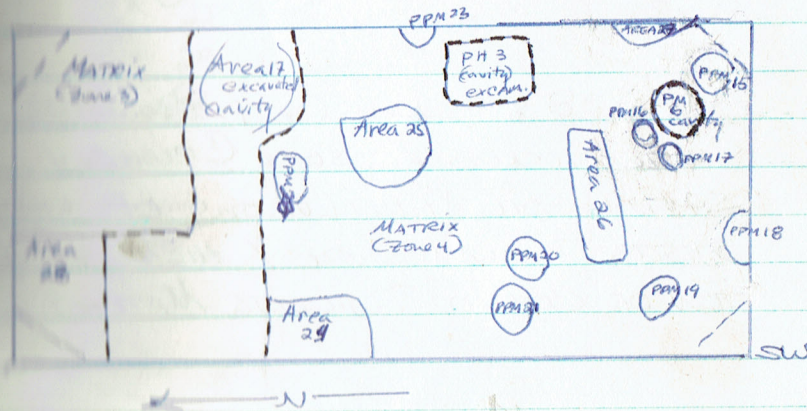 PPM 23
AREA 27
MATRIX
(Zone 3)
Area 17
excavated
cavity
PH 3
(cavity)
excav.
PPM 15
PM
6
cavity
PPM 16
PPM 17
Area 25
Area 26
MATRIX
(Zone 4)
PPM 18
PPM 20
PPM 19
PPM 21
Area
Area
24
SW
N